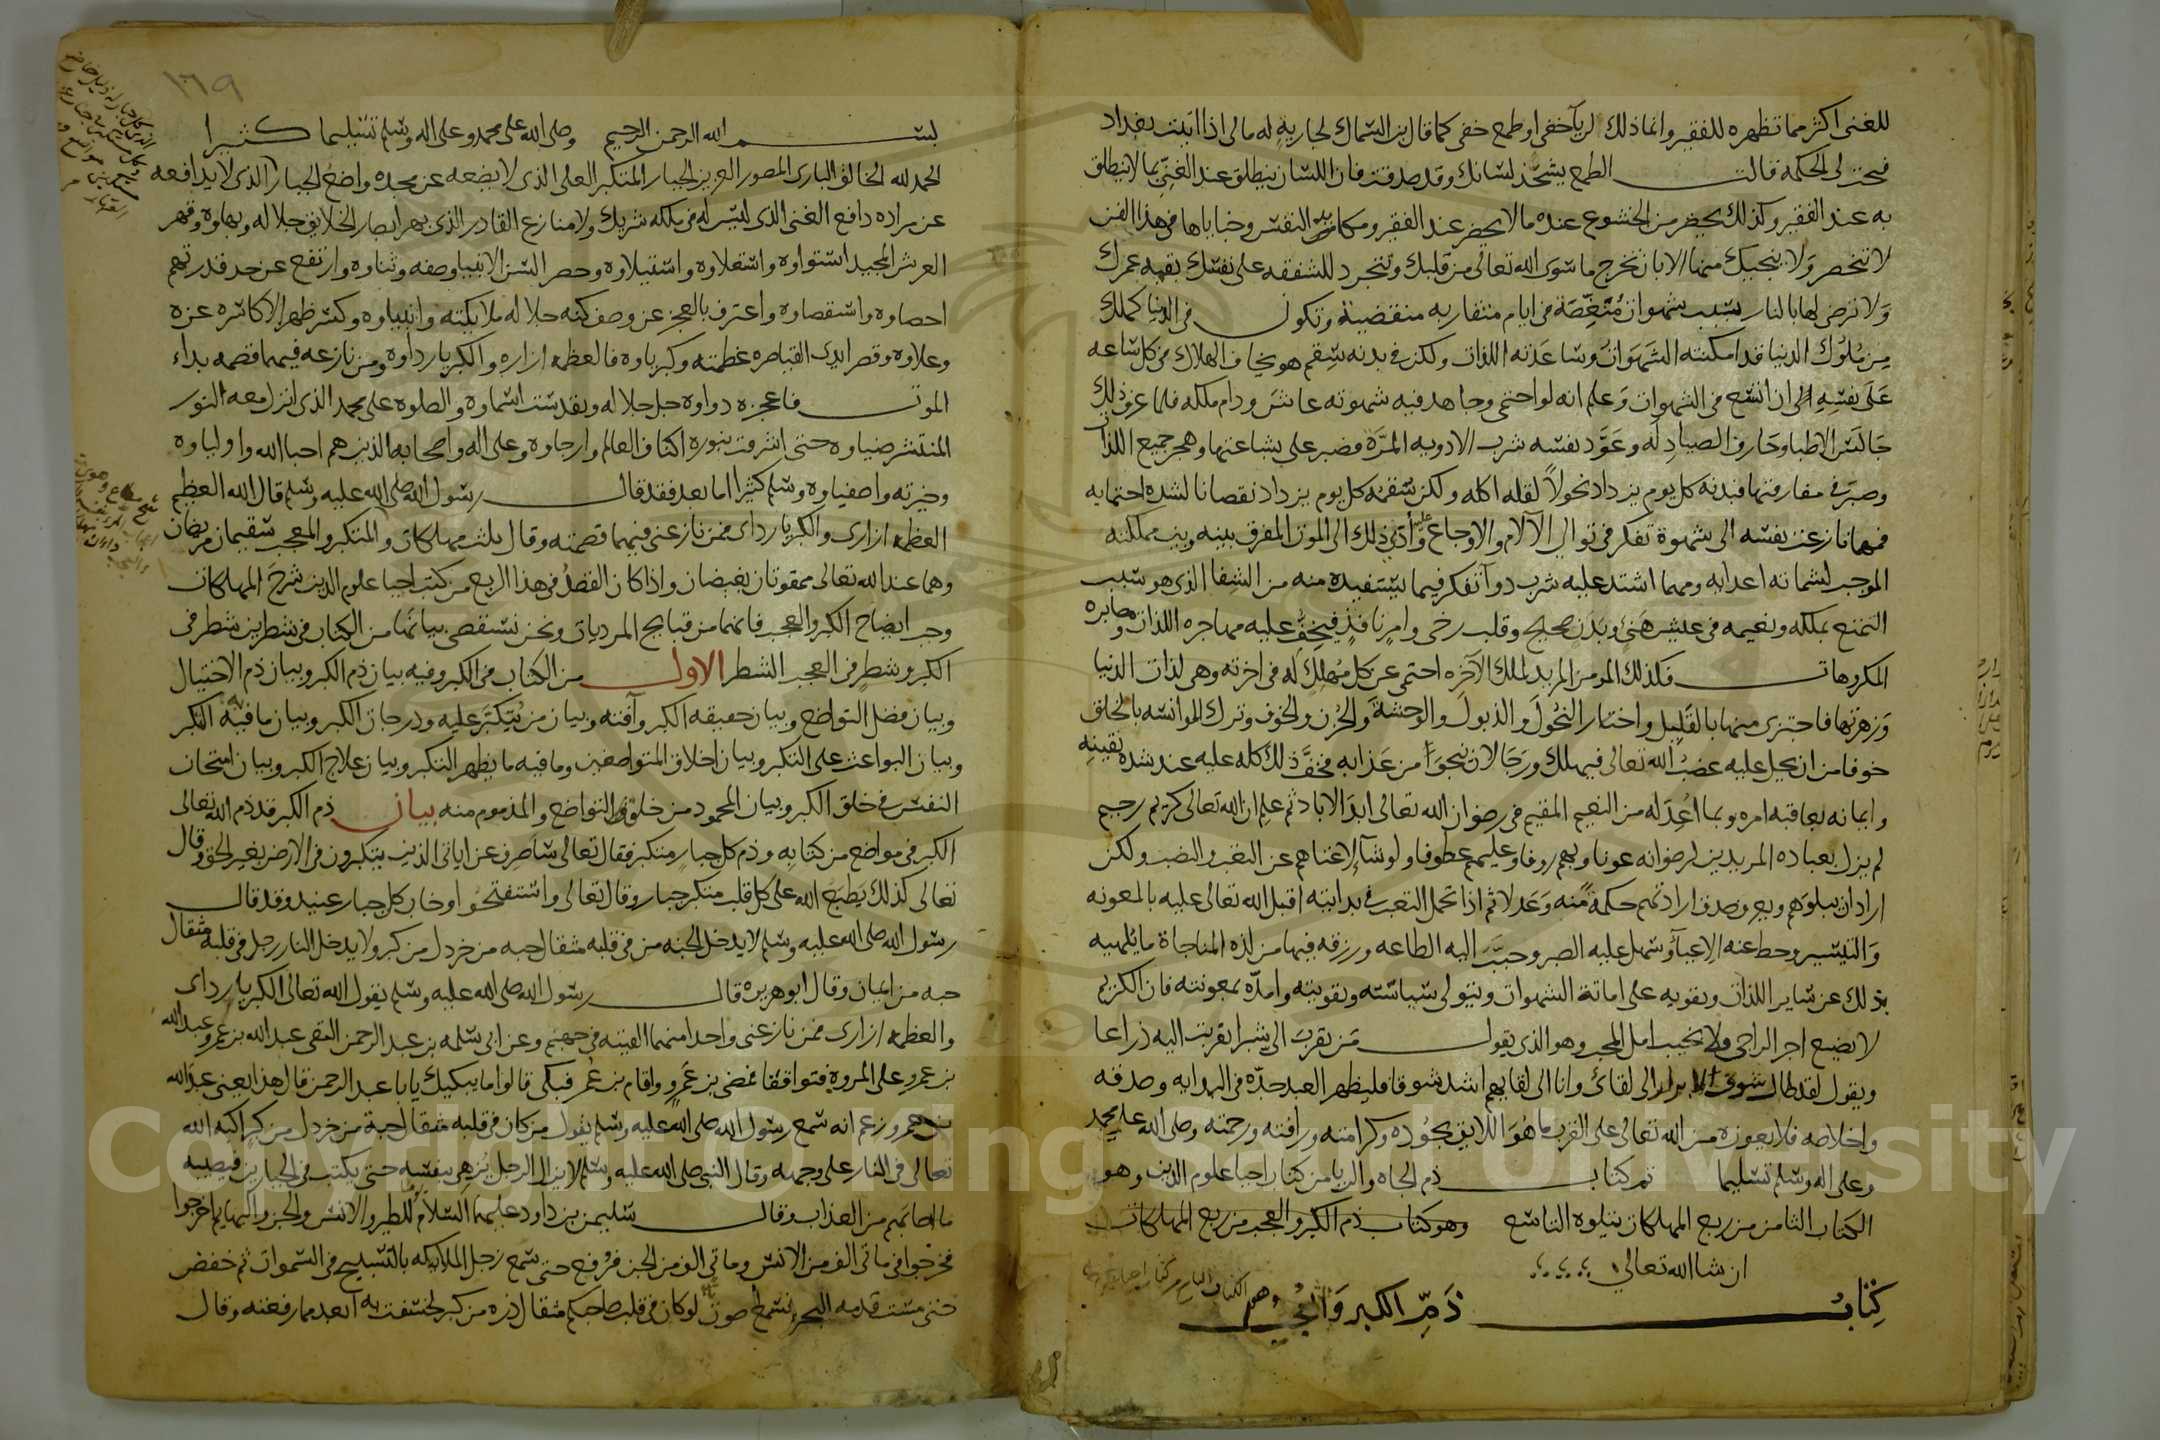 للغنى اكثر مما تظهره للفقير وانما ذلك لريآ خفى او طمع خفى كما قال بن السماك لجارية له مالى اذا اتيت بغداد
فتحت لى الحكمه قالت الطمع يشحذ لسانك وقد صدقت فان اللسان ينطلق عند الغنى بما لا ينطلق
به عند الفقير وكذلك يحضر من الخشوع عنده ما لا يحضر عند الفقير ومكايد النفس وخباياها فى هذا الفن
لا تنحصر ولا ينجيك منها الا بان تخرج ما سوى الله تعالى من قلبك وتتجرد للشفقه على نفسك بقيه عمرك
ولا ترضى لها بالنار بسبب شهوات منغصة فى ايام متقاربه منقضية وتكون فى الدنيا كملك
من ملوك الدنيا قد امكنته الشهوات وساعدته اللذات ولكن فى بدنه سقم هو يخاف الهلاك فى كل ساعه
على نفسه الى ان اتسع فى الشهوات وعلم انه لو احتمى وجاهد فيه شهوته عاش ودام ملكه فلما عرف ذلك
جالس الاطبا وحارف الصيادله وعود نفسه شرب الادويه المرة فصبر على بشاعتها وهجر جميع اللذات
وصبر فى مفارقتها فبدنه كل يوم يزداد نحولا لقله اكله ولكن سقمه كل يوم يزداد نقصانا لشدة احتمايه
فمهما نازعته نفسه الى شهوة تفكر فى توالى الآلام والاوجاع عليه وأدى ذلك الى الموت المفرق بينه وبين مملكته
الموجب لشماته اعدايه ومهما اشتد عليه شرب دوآ تفكر فيما يستفيده منه من الشفا الذى هو سبب
التمتع بملكه ونعيمه فى عيش هنى وبدن صحيح وقلب رخى وامر نافذ فيخف عليه مهاجره اللذات ومصابره
المكروهات فكذلك المومن المريد لملك الآخره احتمى عن كل مهلك له فى اخرته وهى لذات الدنيا
وزهرتها فاجتزى منها بالقليل واختار النحول والذبول والوحشة والحزن والخوف وترك الموانسه بالخلق
خوفا من ان يحل عليه غضب الله تعالى فيهلك ورجا لان ينجوا من عذابه فخف ذلك كله عليه عند شدة يقينه
وايمانه بعاقبه امره وبما اعد له من النعيم المقيم فى رضوان الله تعالى ابد الاباد ثم علم ان الله تعالى كريم رحيم
لم يزل بعباده المريدين لرضوانه عونا وبهم روفا وعليهم عطوفا ولو شآ لاغناهم عن التعب والنصب ولكن
اراد ان يبلوهم ويعرف صدق ارادتهم حكمة منه وعدلا ثم اذا تحمل التعب فى بدايته اقبل الله تعالى عليه بالمعونه
والتيسير وحط عنه الاعبآ وسهل عليه الصبر وحبب اليه الطاعه ورزقه فيها من لذه المناجاة ما يلهيه
بذلك عن ساير اللذات ويقويه على اماتة الشهوات ويتولى سياسته وتقويته وامده بمعونته فان الكريم
لا يضيع اجر الراجى ولا يخيب امل المحب وهو الذى يقول من تقرب الى شبرا تقربت اليه ذراعا
ويقول لقد طال شوق الابرار الى لقائى وانا الى لقايهم اشد شوقا فليظهر العبد جده فى البدايه وصدقه
واخلاصه فلا يعوزه من الله تعالى على القرب ما هو اللايق بجوده وكرامته ورافته ورحمته وصلى الله على محمد
وعلى اله وسلم تسليما تم كتاب ذم الجاه والريا من كتاب احيا علوم الدين وهو
الكتاب الثامن من ربع المهلكات يتلوه التاسع وهو كتاب ذم الكبر والعجب من ربع المهلكات
ان شا الله تعالى
كتاب ذم الكبر والعجب
١٦٩
بسم الله الرحمن الرحيم وصلى الله على محمد وعلى اله وسلم تسليما كثيرا
الحمد لله الخالق البارى المصور العزيز الجبار المتكبر العلى الذى لا يضعه عن مجده واضع الجبار الذى لا يدافعه
عن مراده دافع الغنى الذى ليس له فى ملكه شريك ولا منازع القادر الذى بهر ابصار الخلايق جلاله وبهاوه وقهر
العرش المجيد استواوه واستعلاوه واستيلاوه وحصر السن الانبيا وصفه وثناوه وارتفع عن حد قدرتهم
احصاوه واستقصاوه واعترف بالعجز عن وصف كنه جلاله ملايكته وانبياوه وكسر ظهر الاكاسره عزه
وعلاوه وقصر ايدى القياصره عظمته وكبرياوه فالعظمه ازاره والكبريا رداوه ومن نازعه فيهما قصمه بداء
الموت فاعجزه دواوه جل جلاله وتقدست اسماوه والصلوه على محمد الذى انزل معه النور
المنتشر ضياوه حتى اشرقت بنوره اكناف العالم وارجاوه وعلى اله واصحابه الذين هم احبا الله واولياوه
وخيرته واصفياوه وسلم كثيرا اما بعد فقد قال رسول الله صلى الله عليه وسلم قال الله العظيم
العظمه ازارى والكبريا رداى فمن نازعنى فيهما قصمته وقال ثلث مهلكات والمتكبر والمعجب سقيمان مريضان
وهما عند الله تعالى ممقوتان بغيضان واذا كان القصد فى هذا الربع من كتب احيا علوم الدين شرح المهلكات
وجب ايضاح الكبر والعجب فانهما من قبايح المرديات ونحن نستقصى بيانهما من الكتاب فى شطرين شطر فى
الكبر وشطر فى العجب الشطر الاول من الكتاب فى الكبر وفيه بيان ذم الكبر وبيان ذم الاختيال
وبيان فضل التواضع وبيان حقيقه الكبر وآفته وبيان من يتكبر عليه ودرجات الكبر وبيان ما فيه التكبر
وبيان البواعث على التكبر وبيان اخلاق المتواضعين وما فيه ما يظهر التكبر وبيان علاج الكبر وبيان امتحان
النفس فى خلق الكبر وبيان المحمود من خلق التواضع والمذموم منه بيان ذم الكبر قد ذم الله تعالى
الكبر فى مواضع من كتابه وذم كل جبار متكبر فقال تعالى ساصرف عن اياتى الذين يتكبرون فى الارض بغير الحق وقال
تعالى كذلك يطبع الله على كل قلب متكبر جبار وقال تعالى واستفتحوا وخاب كل جبار عنيد وقد قال
رسول الله صلى الله عليه وسلم لا يدخل الجنه من فى قلبه مثقال حبه من خردل من كبر ولا يدخل النار رجل فى قلبه مثقال
حبه من ايمان وقال ابو هريره قال رسول الله صلى الله عليه وسلم يقول الله تعالى الكبريا رداى
والعظمه ازارى فمن نازعنى واحدا منهما القيته فى جهنم وعن ابى سلمه بن عبد الرحمن التقى عبد الله بن عمرو وعبد الله
بن عمر على المروة فتواقفا فمضى بن عمرو واقام بن عمر فبكى قالوا ما يبكيك يابا عبد الرحمن قال هذا يعنى عبد الله
بن عمرو زعم انه سمع رسول الله صلى الله عليه وسلم يقول من كان فى قلبه مثقال حبة من خردل من كبر اكبه الله
تعالى فى النار على وجهه وقال النبى صلى الله عليه وسلم لا يزال الرجل يزهى بنفسه حتى يكتب فى الجبارين فيصيبه
ما اصابهم من العذاب وقال سليمن بن داود عليهما السلام للطير والانس والجن والبهايم اخرجوا
فخرجوا فى مائى الف من الانس ومائى الف من الجن فرفع حتى سمع زجل الملايكه بالتسبيح فى السموات ثم خفض
حتى مست قدميه البحر فسمع صوت لو كان فى قلب صاحبكم مثقال ذره من كبر لخسفت به ابعد مما رفعته وقال
Copyright © King Saud University